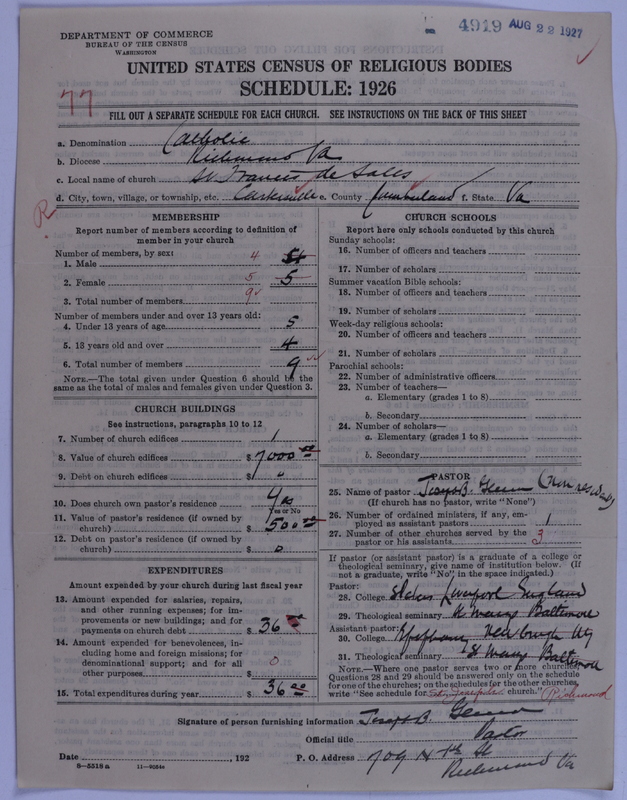 4919 AUG 22 1927
DEPARTMENT OF COMMERCE
BUREAU OF THE CENSUS
WASHINGTON
UNITED STATES CENSUS OF RELIGIOUS BODIES
SCHEDULE: 1926
77
FILL OUT A SEPARATE SCHEDULE FOR EACH CHURCH. SEE INSTRUCTIONS ON THE BACK OF THIS SHEET
a. Denomination Catholic
b. Diocese Richmond Va
c. Local name of church St. Francis de Sales
d. City, town, village, or township, etc. Cartersville e. County Cumberland f. State Va
R
MEMBERSHIP
Report number of members according to definition of
member in your church
Number of members, by sex:
1. Male 4
2. Female 5 5
3. Total number of members 9
Number of members under and over 13 years old:
4. Under 13 years of age 5
5. 13 years old and over 4
6. Total number of members 9
NOTE.—The total given under Question 6 should be the
same as the total of males and females given under Question 3.
CHURCH BUILDINGS
See instructions, paragraphs 10 to 12
7. Number of church edifices 1
8. Value of church edifices $ 7000 00
9. Debt on church edifices $ 0
10. Does church own pastor's residence Yes
Yes or No
11. Value of pastor's residence (if owned by
church) $ 500
12. Debt on pastor's residence (if owned by
church) $ 0
EXPENDITURES
Amount expended by your church during last fiscal year
13. Amount expended for salaries, repairs,
and other running expenses; for im-
provements or new buildings; and for
payments on church debt $ 36
14. Amount expended for benevolences, in-
cluding home and foreign missions for
denominational support; and for all
other purposes $ 0
15. Total expenditures during year $ 36 00
CHURCH SCHOOLS
Report here only schools conducted by this church
Sunday schools:
16. Number of officers and teachers
17. Number of scholars
Summer vacation Bible schools:
18. Number of officers and teachers
19. Number of scholars
Week-day religious schools:
20. Number of officers and teachers
21. Number of scholars
Parochial schools:
22. Number of administrative officers
23. Number of teachers—
a. Elementary (grades 1 to 8)
b. Secondary
24. Number of scholars—
a. Elementary (grades 1 to 8)
b. Secondary
PASTOR
25. Name of pastor Joseph B.
(If church has no pastor, write "None")
26. Number of ordained ministers, if any, em-
ployed as assistant pastors 1
27. Number of other churches served by the
pastor or his assistants 3
If pastor (or assistant pastor) is a graduate of a college or
theological seminary, give name of institution below. (If
not a graduate, write "No" in the space indicated.)
Pastor:
28. College Liverpool England
29. Theological seminary St Marys Baltimore
Assistant pastor:
30. College
31. Theological seminary St Marys Baltimore
NOTE.—Where one pastor serves two or more churches,
Questions 28 and 29 should be answered only on the schedule
for one of the churches; on the schedules for the other churches,
write "See schedule for church." Richmond
Signature of person furnishing information Joseph B.
Official title Pastor
Date , 192 P. O. Address 709 N 7th St
Richmond Va
8—5518a 11—9084c